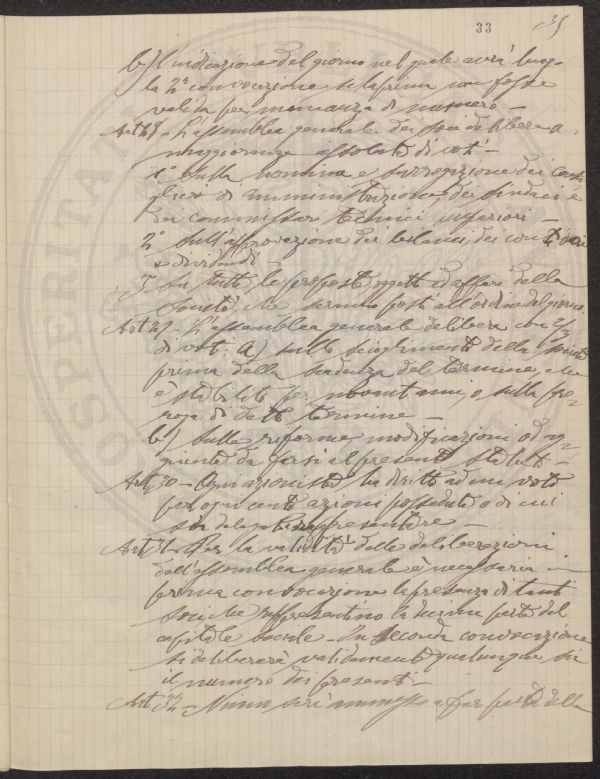 33
b) l'indicazione del giorno nel quale avrà luogo
la 2ª convocazione se la prima non fosse
valida per mancanza di numero –
Art 28 – L'assemblea generale dei soci delibera a
maggioranza assoluta di voti –
1° Sulla nomina e surrogazione dei consi-
glieri di amministrazione, dei sindaci e
dei commissari tecnici inferiori –
2° Sull'approvazione dei bilanci, dei conti
e dividendi –
3° Su tutte le proposte, oggetti ed affari della
Società che saranno posti all'ordine del giorno.
Art 29 – L'assemblea generale delibera con
di voti: a) sullo scioglimento della società
prima della scadenza del termine, che
è stabilito per novant'anni, o sulla pro-
roga di detto termine –
b) Sulle riforme, modificazioni od ag-
giunte da farsi al presente statuto –
Art 30 – Ogni azionista ha diritto ad un voto
per ogni cento azioni possedute o di cui
sia rappresentare –
Art 31 – Per la validità delle deliberazioni
dell'assemblea generale è necessaria in
prima convocazione la presenza di tanti
soci che rappresentino la decima parte del
capitale sociale – In seconda convocazione
si delibererà validamente qualunque sia
il numero dei presenti –
Art 32 – Niuno sarà ammesso a far parte della